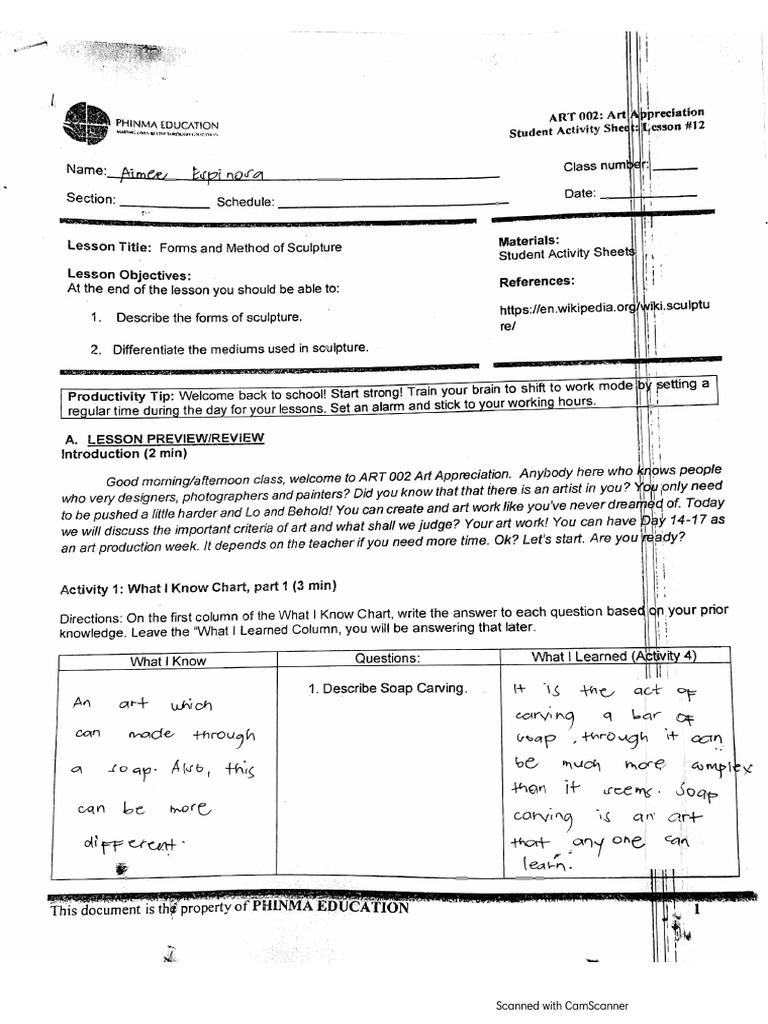 PHINMA EDUCATION
MAKING LIVES BETTER THROUGH EDUCATION
ART 002: Art Appreciation
Student Activity Sheet: Lesson #12
Name: Aimee Espinosa
Class number:
Section:
Schedule:
Date:
Lesson Title: Forms and Method of Sculpture
Lesson Objectives:
At the end of the lesson you should be able to:
1. Describe the forms of sculpture.
2. Differentiate the mediums used in sculpture.
Materials:
Student Activity Sheets
References:
https://en.wikipedia.org/wiki.sculptu
re/
Productivity Tip: Welcome back to school! Start strong! Train your brain to shift to work mode by setting a
regular time during the day for your lessons. Set an alarm and stick to your working hours.
A. LESSON PREVIEW/REVIEW
Introduction (2 min)
Good morning/afternoon class, welcome to ART 002 Art Appreciation. Anybody here who knows people
who very designers, photographers and painters? Did you know that that there is an artist in you? You only need
to be pushed a little harder and Lo and Behold! You can create and art work like you've never dreamed of. Today
we will discuss the important criteria of art and what shall we judge? Your art work! You can have Day 14-17 as
an art production week. It depends on the teacher if you need more time. Ok? Let's start. Are you ready?
Activity 1: What I Know Chart, part 1 (3 min)
Directions: On the first column of the What I Know Chart, write the answer to each question based on your prior
knowledge. Leave the "What I Learned Column, you will be answering that later.
What I Know
An art which
can made through
a soap. Also, this
can be more
different.
Questions:
1. Describe Soap Carving.
What I Learned (Activity 4)
It is the act of
carving a bar of
soap, through it can
be much more complex
than it seems. Soap
carving is an art
that any one can
learn.
This document is the property of PHINMA EDUCATION
1
Scanned with CamScanner